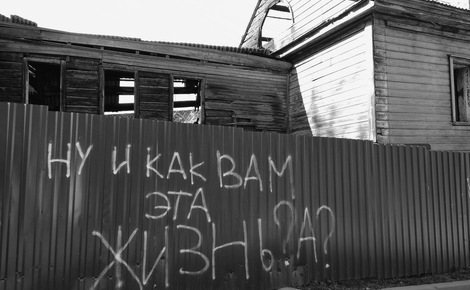 НУ И КАК ВАМ
ЭТА
ЖИЗНЬ? А?